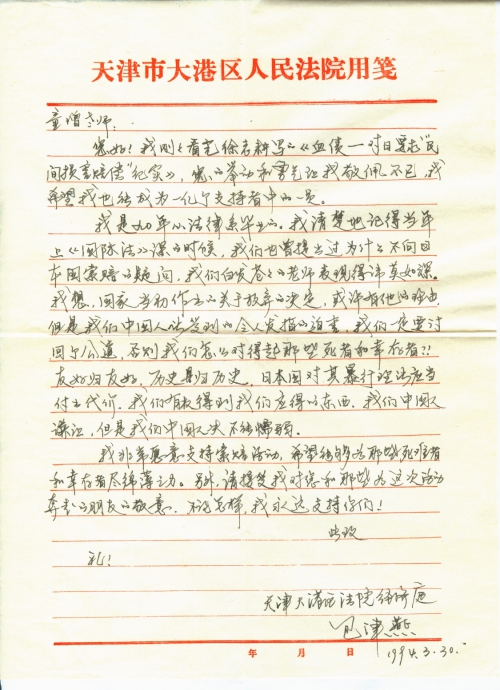 天津市大港区人民法院用笺
童增老师:
您好!我刚刚看完徐志耕写的《血债——对日索赔"民
间损害赔偿"纪实》,您的举动和勇气让我敬佩不已,我
希望我也能成为一亿个支持者中的一员。
我是九0年从法律系毕业的。我清楚地记得当年
上《国际法》课的时候,我们也曾提出过为什么不向日
本国索赔的疑问,我们白发苍苍的老师表现得讳莫如深。
我想,国家当初作出的关于放弃的决定,或许有他的理由,
但是我们中国人所受到的令人发指的迫害,我们一定要讨
回个公道,否则我们怎么对得起那些死者和幸存者?!
友好归友好,历史是归历史,日本国对其暴行理应当
付出代价。我们有权得到我们应得的东西。我们中国人
谦让,但是我们中国人决不能懦弱。
我非常愿意支持索赔活动,希望能够为那些死难者
和幸存者尽绵薄之力。另外,请接受我对您和那些为这次活动
奔走的朋友的敬意。不论怎样,我永远支持你们!
此致
礼!
天津大港区法院经济庭
津燕
年 月 日 1994.3.30.